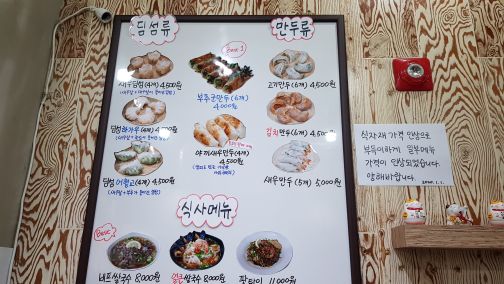 딤섬류
만두류
새우딤섬(4개) 4,500원
Best 1
부추군만두(6개)
4,000원
고기만두(6개) 4,500원
딤섬하가우(4개)
4,500원
야끼새우만두(4개)
4,500원
김치만두(6개) 4,500원
딤섬 어황교(4개) 4,500원
새우만두(6개) 5,000원
식사메뉴
Best
비프쌀국수 8,000원
얼큰쌀국수 8,000원
팟타이 11,000원
식자재 가격 인상으로
부득이하게 일부메뉴
가격이 인상되었습니다.
양해바랍니다.